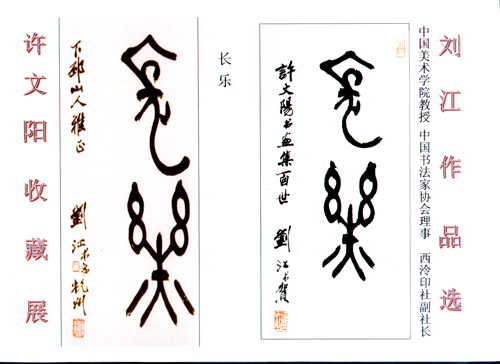 刘江作品选
中国美术学院教授 中国书法家协会理事 西泠印社副社长
長樂
許文陽书画集面世 劉江
长乐
長樂
下邳山人雅正 劉江 杭州
许文阳收藏展